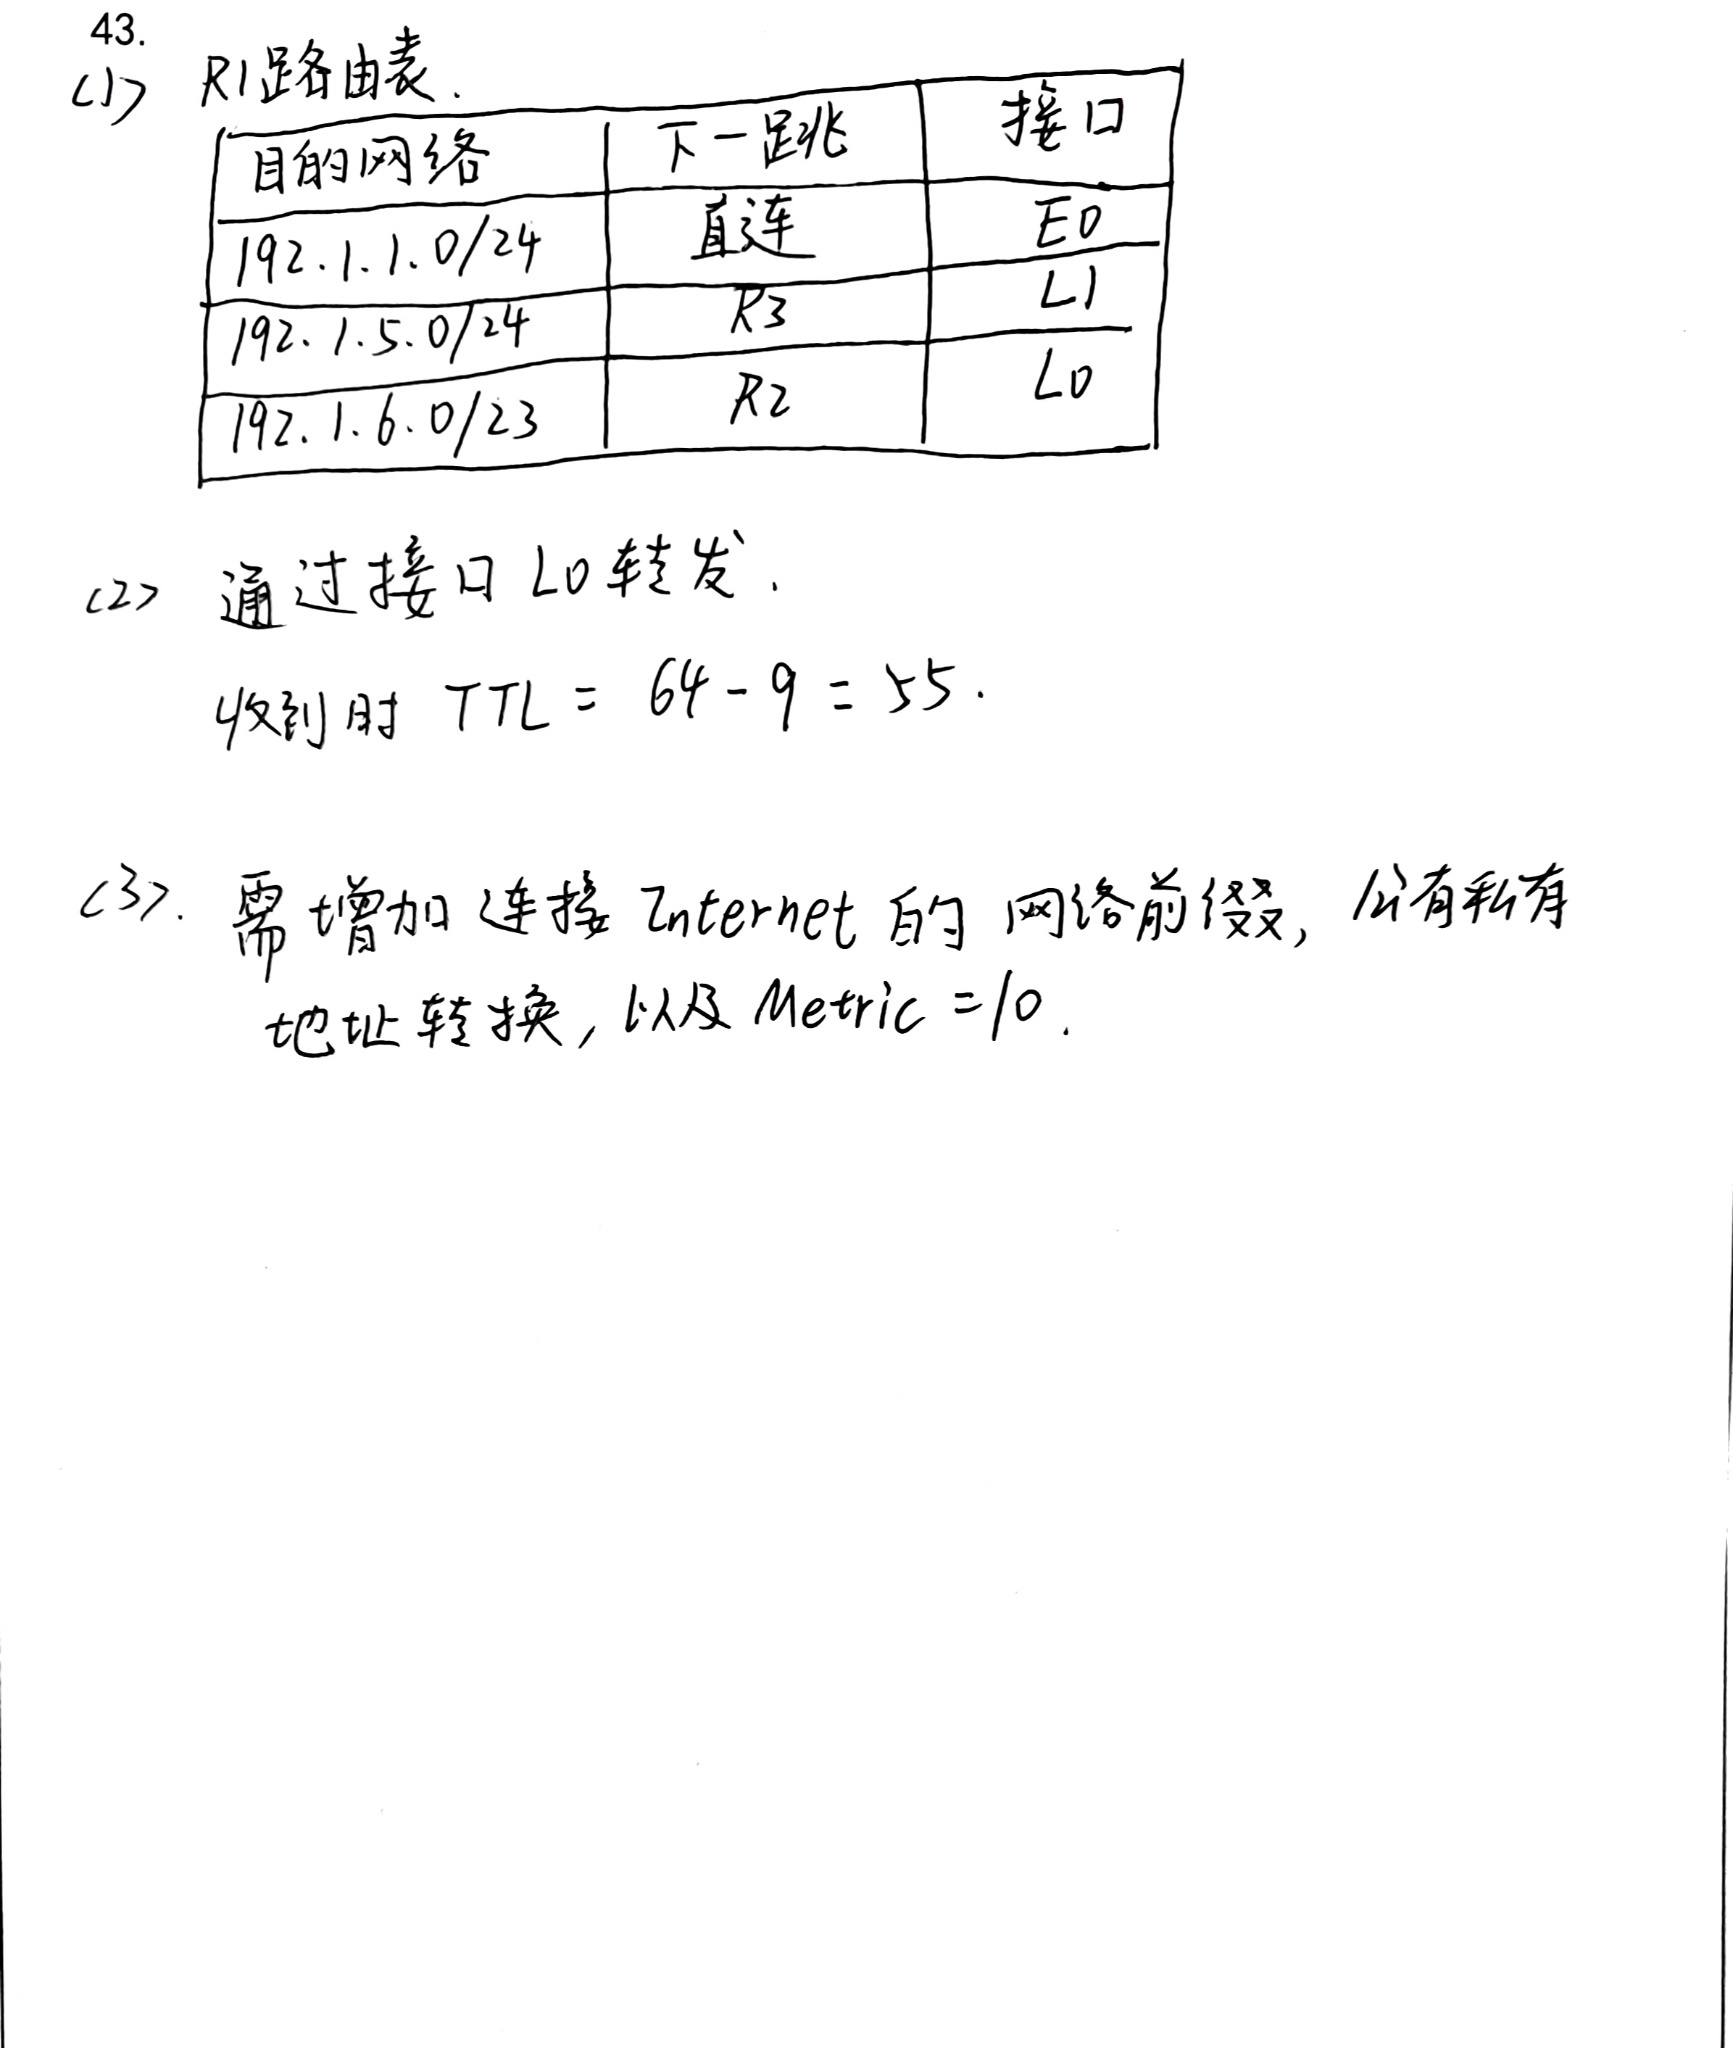 43.
(1) R1路由表.
目的网络 下一跳 接口
192.1.1.0/24 直连 E0
192.1.5.0/24 R3 L1
192.1.6.0/23 R2 L0
(2) 通过接口 L0 转发.
收到时 TTL = 64-9=55.
(3). 需增加连接 Internet 的网络前缀, 公有私有
地址转换, 以及 Metric=10.